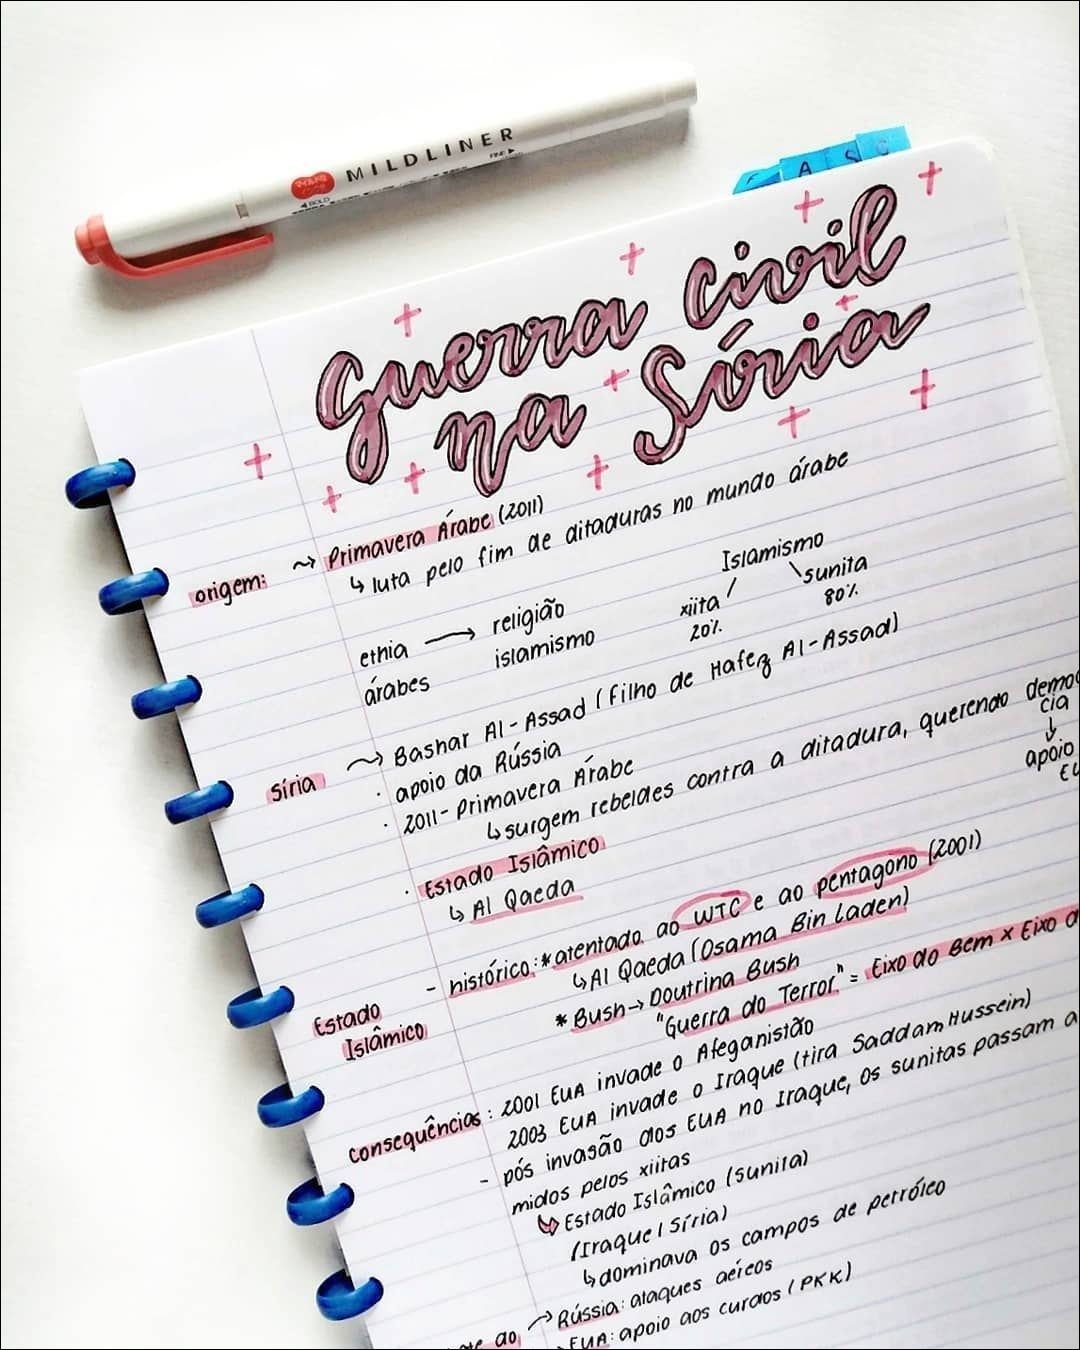 MILDLINER
BOLD
FINE
A S C
Guerra civil
na Síria
origem: → Primavera Árabe (2011)
↳ luta pelo fim de ditaduras no mundo árabe
ethia → religião
árabes islamismo
Islamismo
xiita sunita
20% 80%
Síria → Bashar Al-Assad (filho de Hafez Al-Assad)
· apoio da Rússia
· 2011- Primavera Árabe
↳ surgem rebeldes contra a ditadura, querendo democ
cia
↓
apoio
EU
· Estado Islâmico
↳ Al Qaeda
Estado
Islâmico
- histórico: * atentado ao WTC e ao pentagono (2001)
↳ Al Qaeda (Osama Bin Laden)
* Bush → Doutrina Bush
"Guerra do Terror" = Eixo do Bem x Eixo d
consequências: 2001 EUA invade o Afeganistão
2003 EUA invade o Iraque (tira Saddam Hussein)
- pós invasão dos EUA no Iraque, os sunitas passam a
midos pelos xiitas
↳ Estado Islâmico (sunita)
(Iraque / Síria)
↳ dominava os campos de petróleo
ao → Rússia: ataques aéreos
→ EUA: apoio aos curdos (PKK)